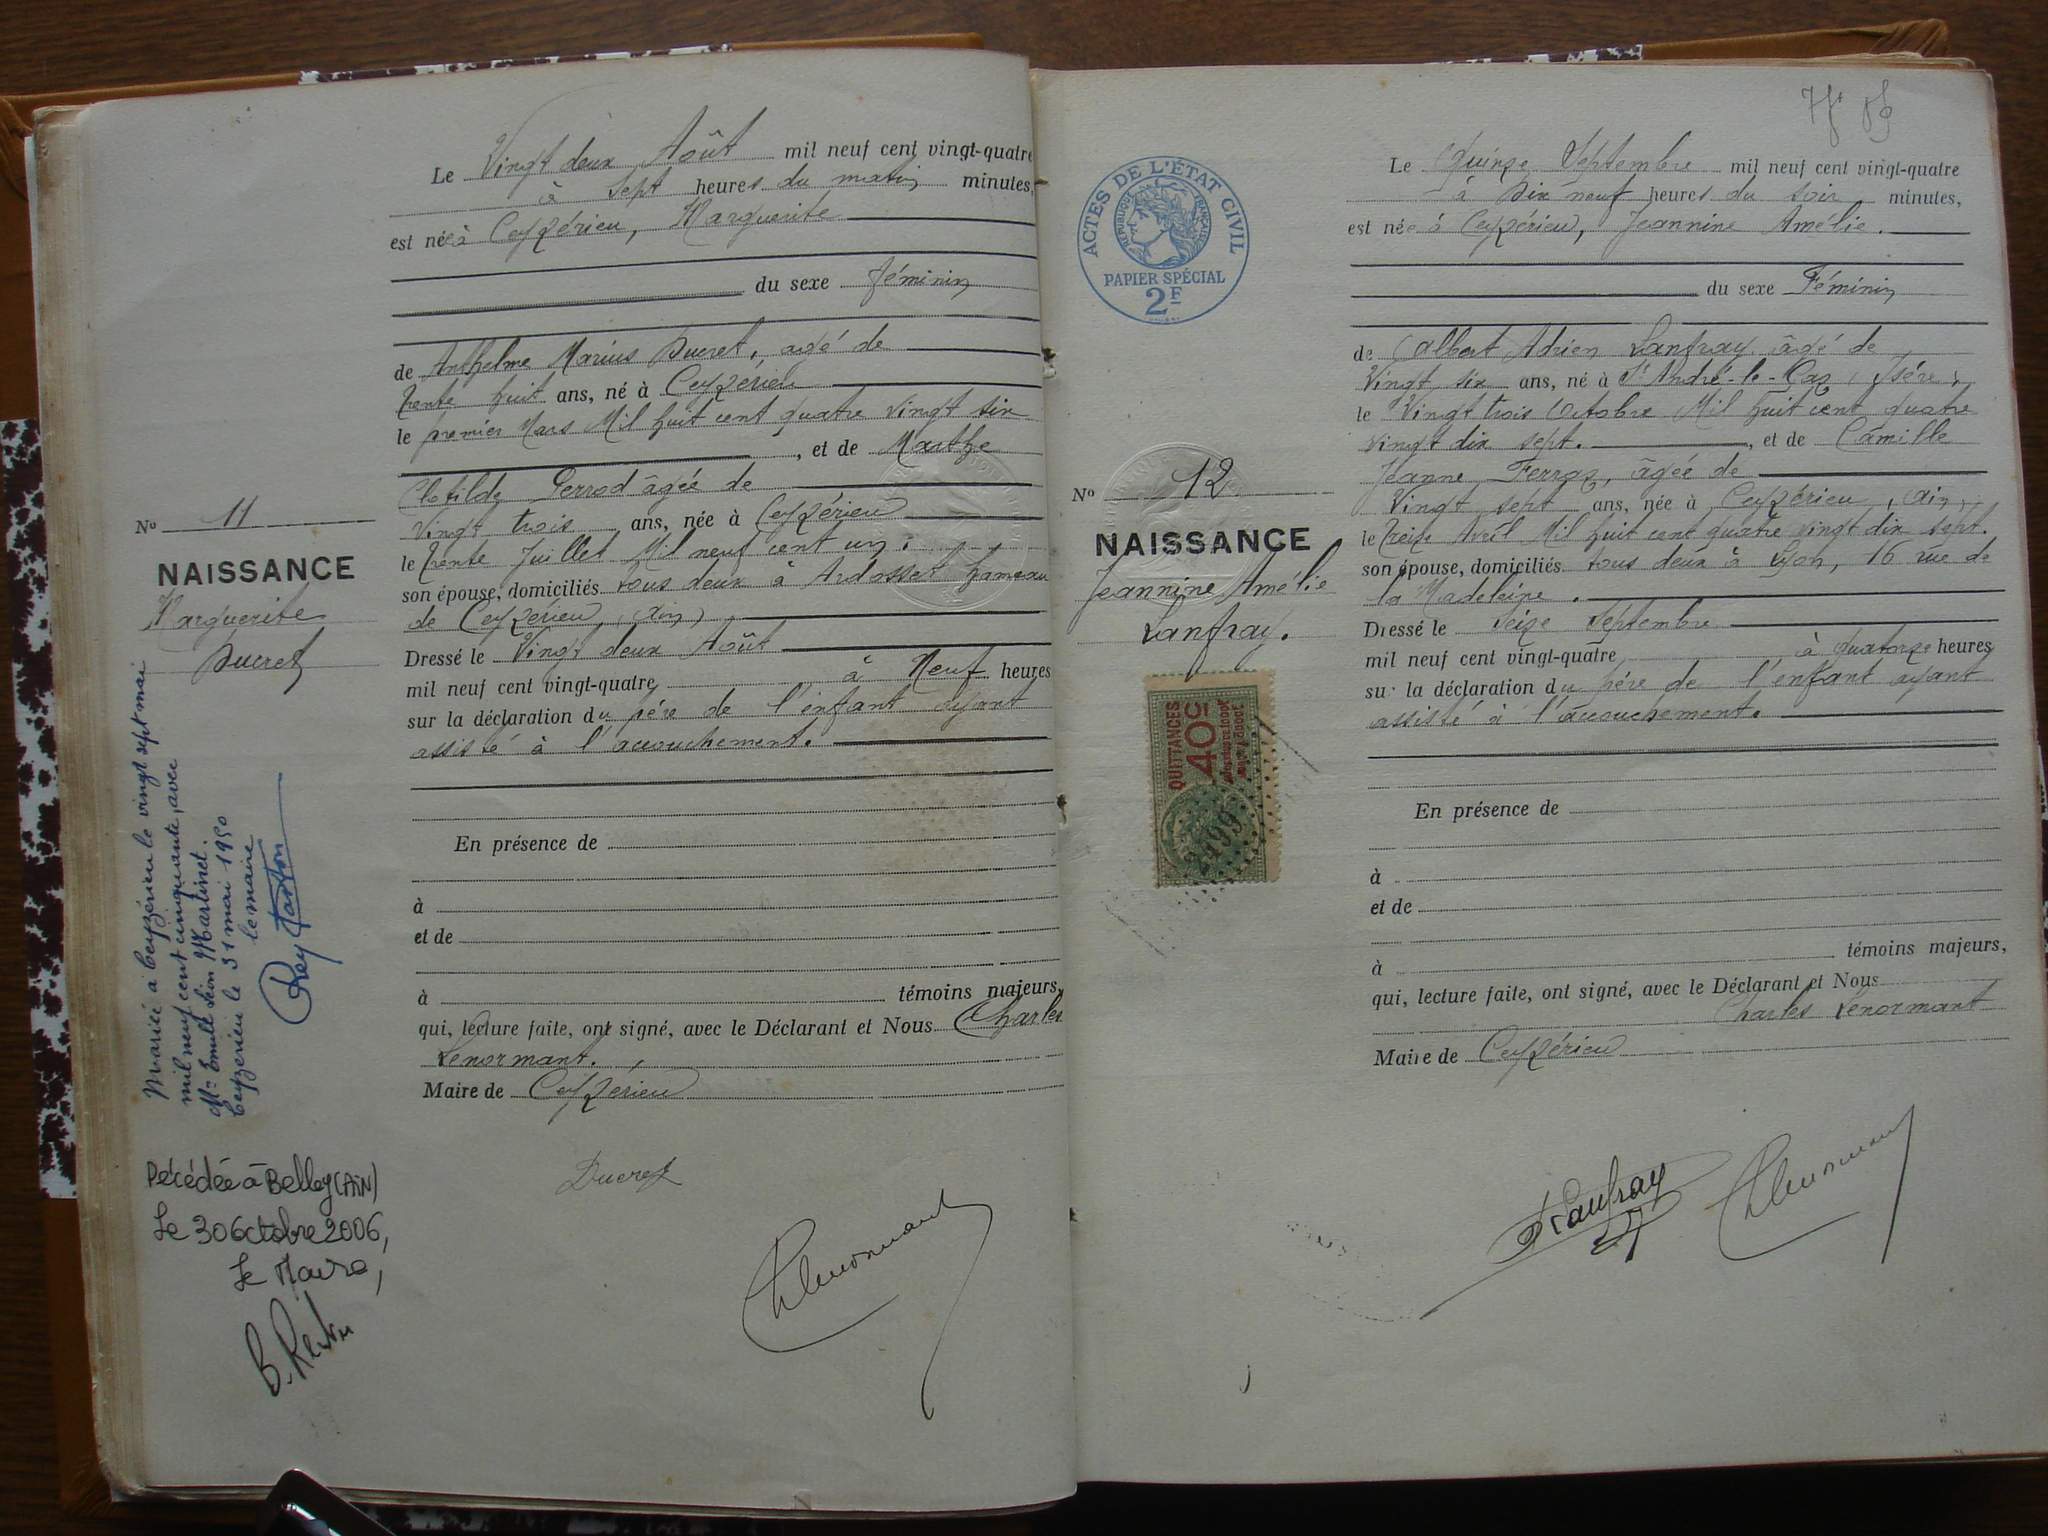 Le Vingt deux Août mil neuf cent vingt-quatre
à sept heures du matin minutes,
est née à Ceyzérieu, Marguerite
du sexe féminin
de Anthelme Marius Ducret, agé de
trente huit ans, né à Ceyzérieu
le premier Mars Mil huit cent quatre vingt six
, et de Marthe
Clotilde Perrod âgée de
Vingt trois ans, née à Ceyzérieu
le trente Juillet Mil neuf cent un.
son épouse, domiciliés tous deux à Ardosset hameau
de Ceyzérieu (Ain)
Dressé le Vingt deux Août
mil neuf cent vingt-quatre à Neuf heures
sur la déclaration du père de l'enfant ayant
assisté à l'accouchement.
En présence de
à
et de
à témoins majeurs,
qui, lecture faite, ont signé, avec le Déclarant et Nous Charles
Lenormant.
Maire de Ceyzérieu
Ducret
CLenormant
No 11
NAISSANCE
Marguerite
Ducret
Mariée à Ceyzérieu le vingt sept mai
mil neuf cent cinquante, avec
Mr Emile Léon Martinet.
Ceyzérieu le 31 mai 1950
le maire
Décédée à Belley (AIN)
Le 30 Octobre 2006,
Le Maire,
ACTES DE L'ÉTAT CIVIL
RÉPUBLIQUE FRANÇAISE
PAPIER SPÉCIAL
2F
No 12
NAISSANCE
Jeannine Amélie
Lanfray.
QUITTANCES
40c
2499
Le Quinze Septembre mil neuf cent vingt-quatre
à dix neuf heures du soir minutes,
est née à Ceyzérieu, Jeannine Amélie.
du sexe Féminin
de Albert Adrien Lanfray âgé de
Vingt six ans, né à St André-le-Gaz (Isère)
le Vingt trois Octobre Mil huit cent quatre
vingt dix sept. , et de Camille
Jeanne Ferraz, âgée de
Vingt sept ans, née à Ceyzérieu (Ain)
le treize Avril Mil huit cent quatre vingt dix sept.
son épouse, domiciliés tous deux à Lyon, 16 rue de
la Madeleine.
Dressé le seize Septembre
mil neuf cent vingt-quatre à quatorze heures
sur la déclaration du père de l'enfant ayant
assisté à l'accouchement.
En présence de
à
et de
à témoins majeurs,
qui, lecture faite, ont signé, avec le Déclarant et Nous
Charles Lenormant
Maire de Ceyzérieu
Lanfray
CLenormant